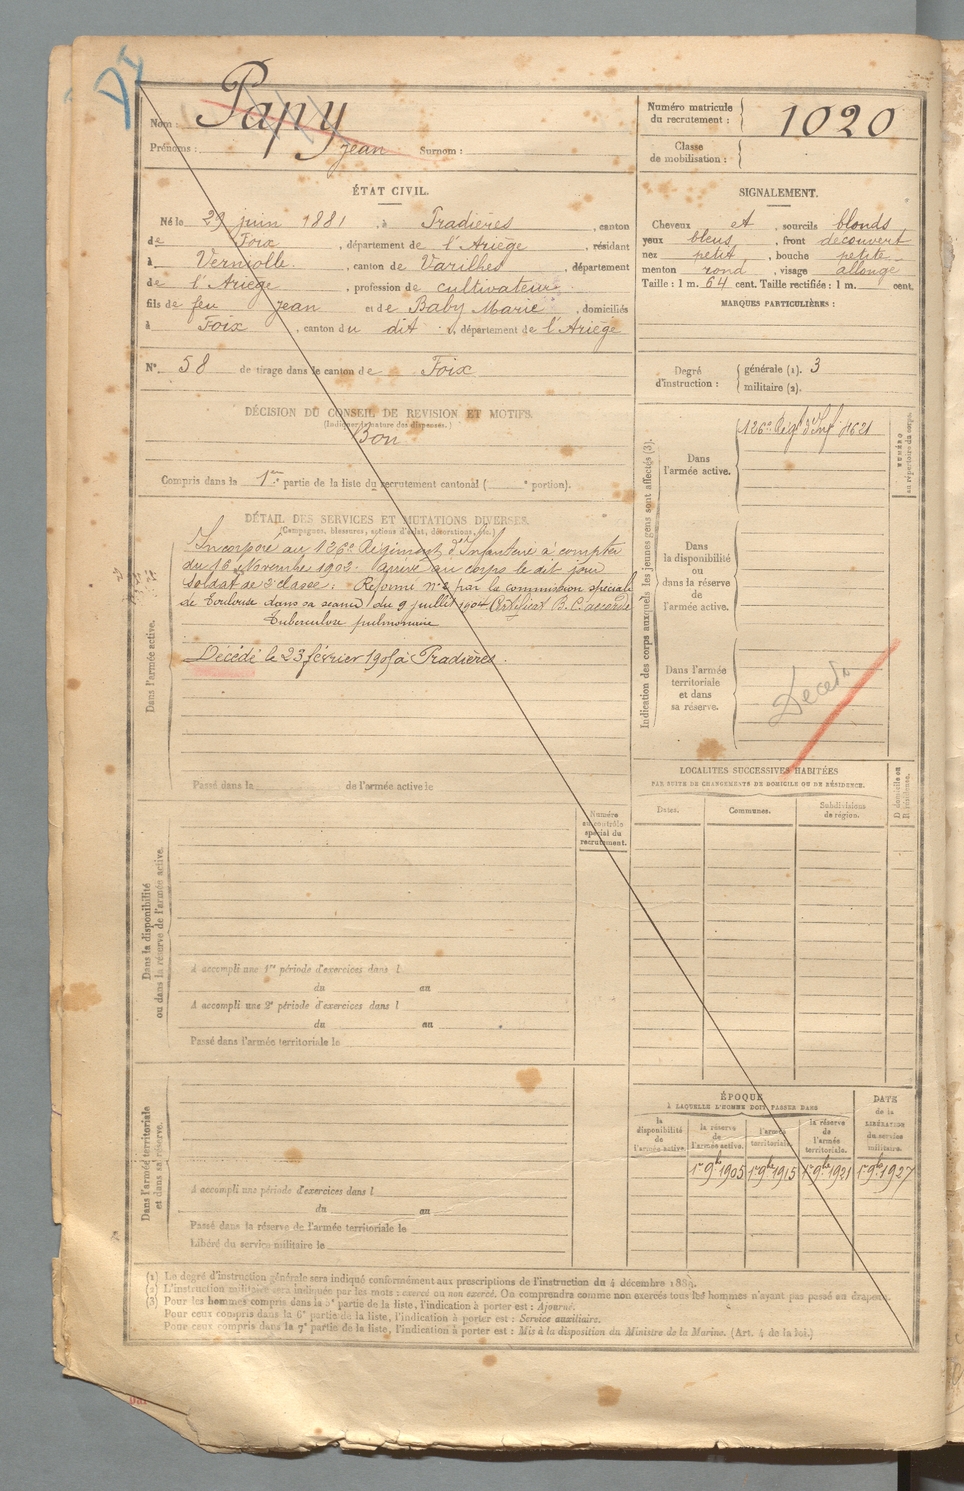 Dr
Nom : Papy
Prénoms : Jean Surnom :
Numéro matricule du recrutement : 1020
Classe de mobilisation :
ÉTAT CIVIL.
Né le 29 juin 1881 , à Pradières , canton
de Foix , département de l'Ariège , résidant
à Verniolle , canton de Varilhes , département
de l'Ariège , profession de cultivateur
fils de feu Jean et de Baby Marie , domiciliés
à Foix , canton du dit , département de l'Ariège
SIGNALEMENT.
Cheveux et , sourcils blonds
yeux bleus , front découvert
nez petit , bouche petite
menton rond , visage allongé
Taille : 1 m. 64 cent. Taille rectifiée : 1 m. cent.
MARQUES PARTICULIÈRES :
N° 58 de tirage dans le canton de Foix
Degré d'instruction : générale (1). 3
militaire (2).
DÉCISION DU CONSEIL DE REVISION ET MOTIFS.
(Indiquer la nature des dispenses.)
Bon
Compris dans la 1re partie de la liste du recrutement cantonal ( e portion).
DÉTAIL DES SERVICES ET MUTATIONS DIVERSES.
(Campagnes, blessures, actions d'éclat, décorations, etc.)
Dans l'armée active.
Incorporé au 126e Régiment d'Infanterie à compter
du 16 Novembre 1902. arrivé au corps le dit jour
Soldat de 2e classe. Réformé n° 2 par la commission spéciale
de Toulouse dans sa séance du 9 juillet 1904 Certificat B. C. accordé
Tuberculose pulmonaire
Décédé le 23 février 1905 à Pradières.
Passé dans la de l'armée active le
Indication des corps auxquels les jeunes gens sont affectés (3).
NUMÉRO au répertoire du corps.
Dans l'armée active.
126e Régt d'Inf 4621
Dans la disponibilité ou dans la réserve de l'armée active.
Dans l'armée territoriale et dans sa réserve.
Décédé
LOCALITÉS SUCCESSIVES HABITÉES
PAR SUITE DE CHANGEMENTS DE DOMICILE OU DE RÉSIDENCE.
Dates. Communes. Subdivisions de région. D. domicile ou R. résidence.
Dans la disponibilité ou dans la réserve de l'armée active.
Numéro au contrôle spécial du recrutement.
A accompli une 1re période d'exercices dans l
du au
A accompli une 2e période d'exercices dans l
du au
Passé dans l'armée territoriale le
Dans l'armée territoriale et dans sa réserve.
A accompli une période d'exercices dans l
du au
Passé dans la réserve de l'armée territoriale le
Libéré du service militaire le
ÉPOQUE
À LAQUELLE L'HOMME DOIT PASSER DANS
la disponibilité de l'armée active.
la réserve de l'armée active.
l'armée territoriale.
la réserve de l'armée territoriale.
DATE de la LIBÉRATION du service militaire.
1er 9bre 1905 1er 9bre 1915 1er 9bre 1921 1er 9bre 1927
(1) Le degré d'instruction générale sera indiqué conformément aux prescriptions de l'instruction du 4 décembre 1889.
(2) L'instruction militaire sera indiquée par les mots : exercé ou non exercé. On comprendra comme non exercés tous les hommes n'ayant pas passé au drapeau.
(3) Pour les hommes compris dans la 5e partie de la liste, l'indication à porter est : Ajourné.
Pour ceux compris dans la 6e partie de la liste, l'indication à porter est : Service auxiliaire.
Pour ceux compris dans la 7e partie de la liste, l'indication à porter est : Mis à la disposition du Ministre de la Marine. (Art. 4 de la loi.)